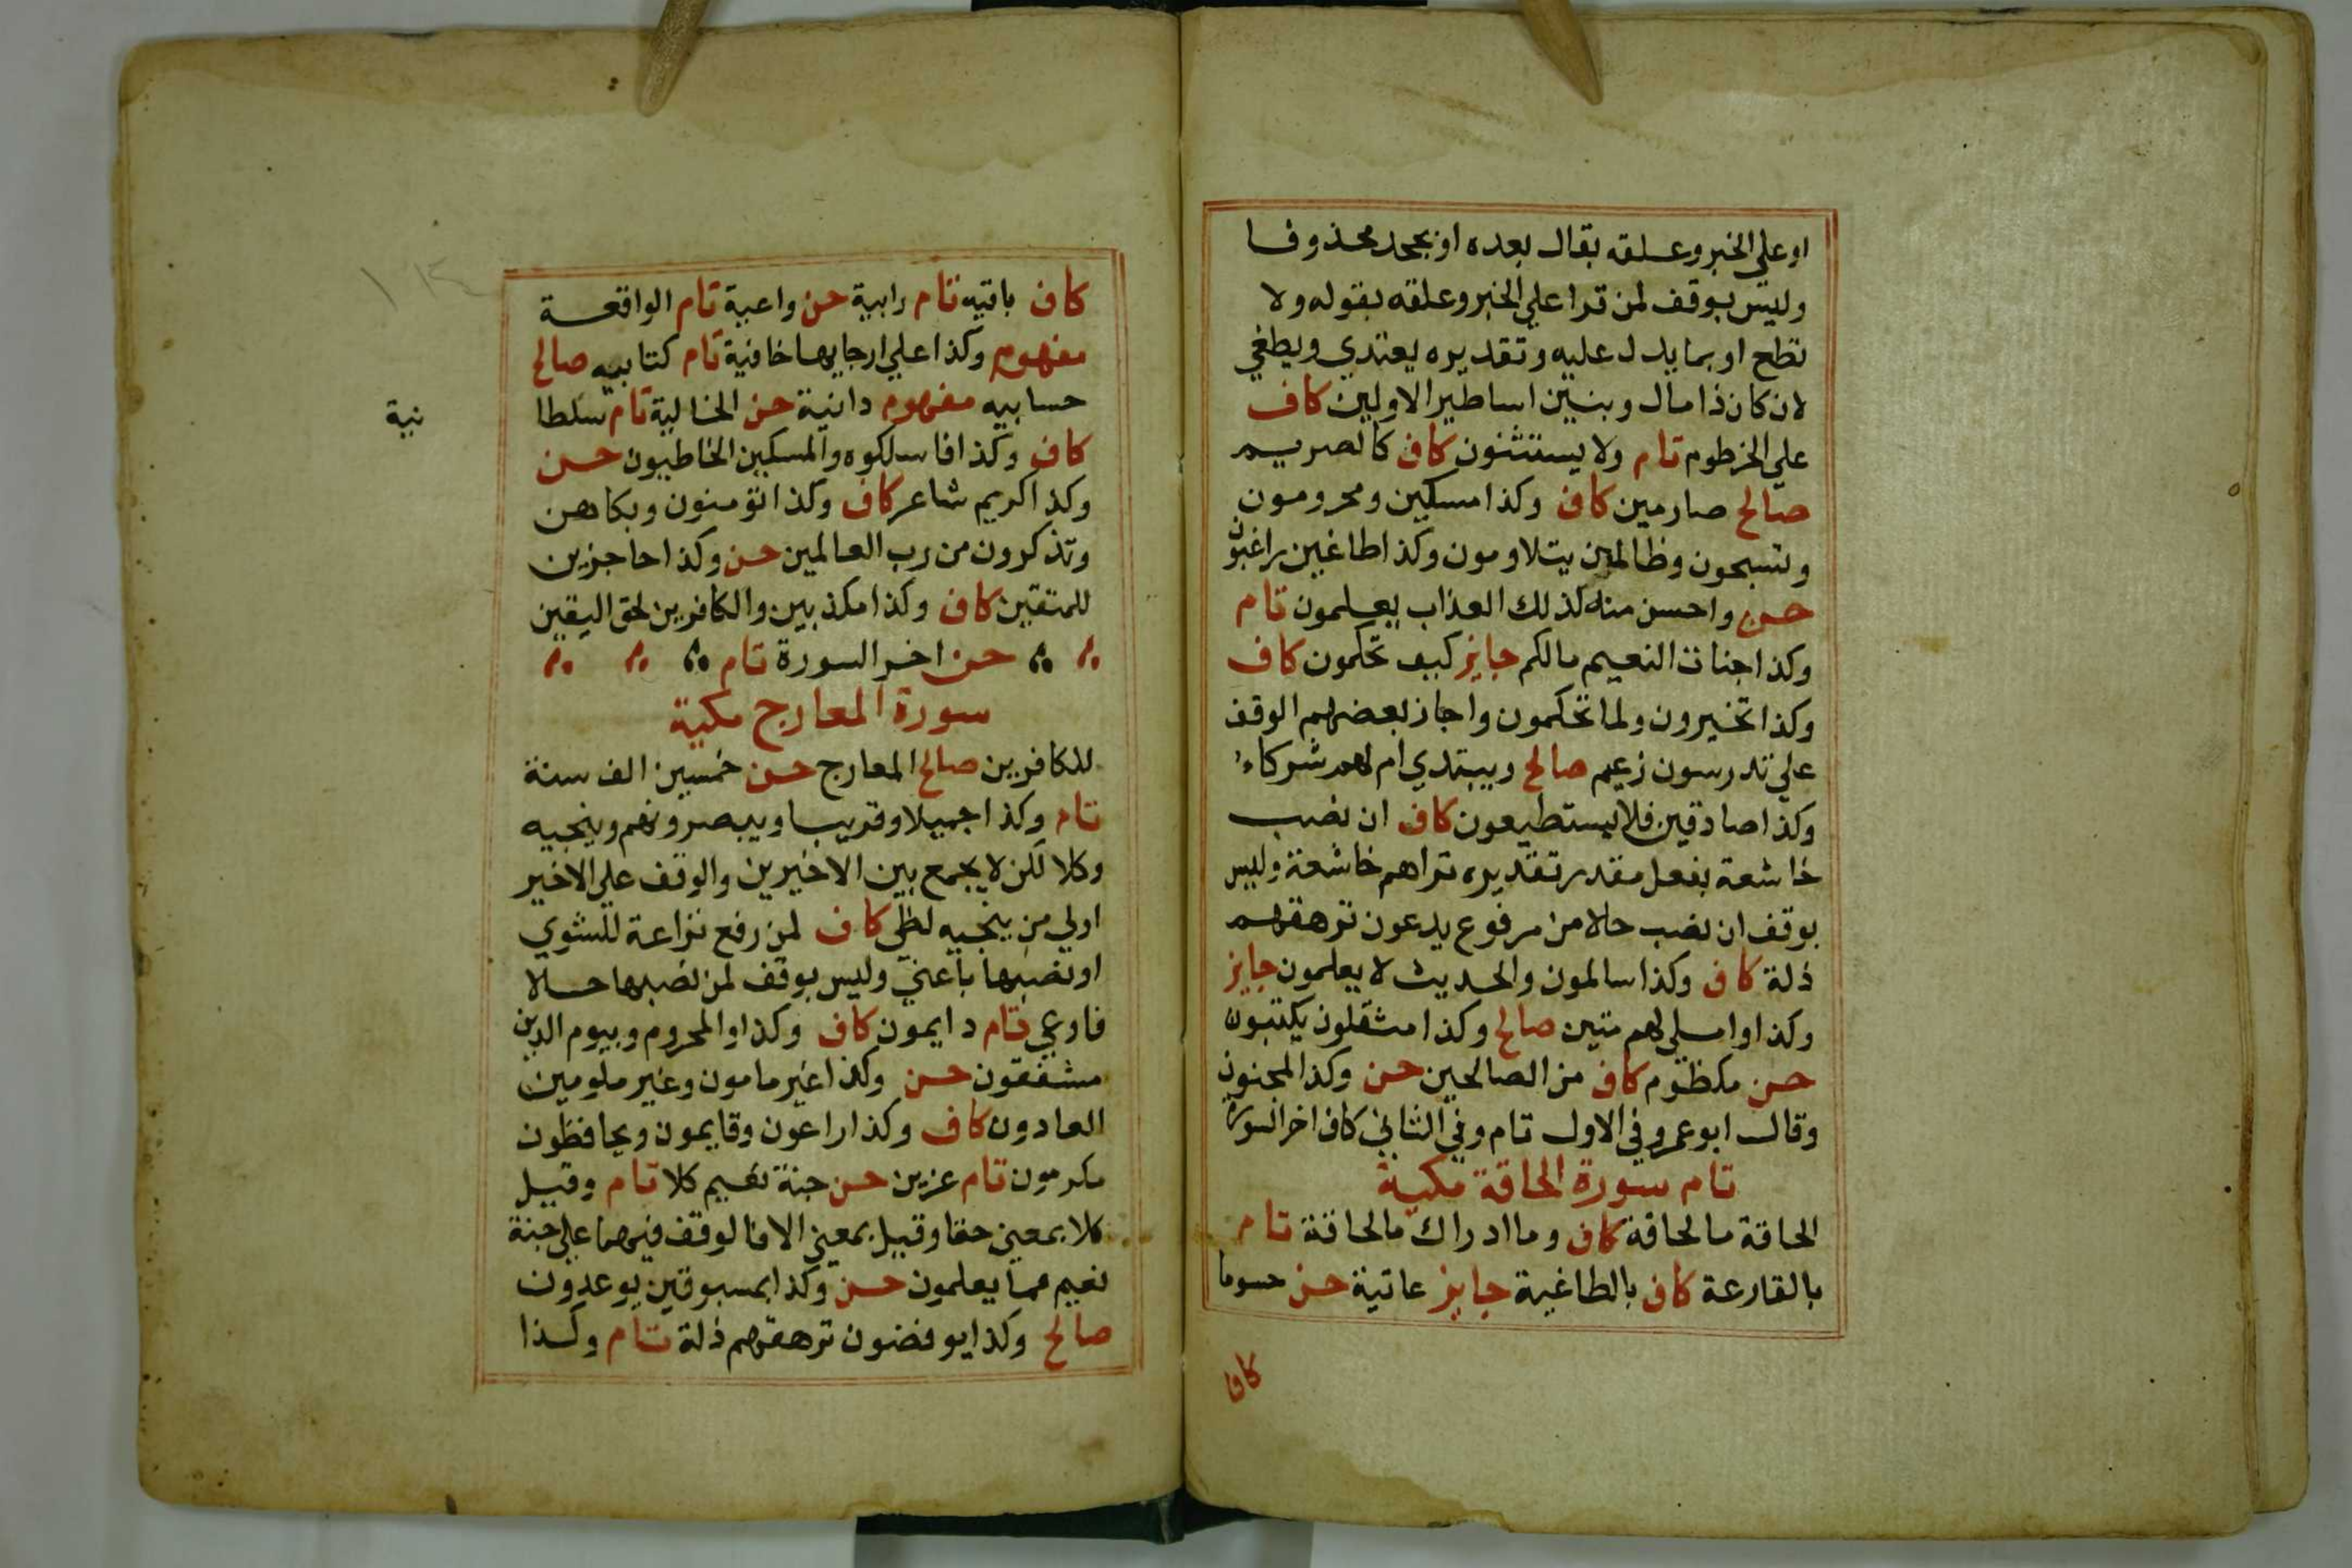 او علي الخبر وعلقه بقال بعده او بجحد محذوفا
وليس بوقف لمن قرا علي الخبر وعلقه بقوله ولا
تطع او بما يدل عليه وتقديره يعتدي ويطغي
لان كان ذا مال وبنين اساطير الاولين كاف
علي الخرطوم تام ولا يستثنون كاف كالصريم
صالح صارمين كاف وكذا مسكين ومحرومون
وتسبحون وظالمين يتلاومون وكذا طاغين راغبون
حسن واحسن منه كذلك العذاب يعلمون تام
وكذا جنات النعيم مالكم جايز كيف تحكمون كاف
وكذا تخيرون ولما تحكمون واجاز بعضهم الوقف
علي تدرسون زعيم صالح ويبتدي ام لهم شركاء
وكذا صادقين فلا يستطيعون كاف ان نصب
خاشعة بفعل مقدر تقديره تراهم خاشعة وليس
بوقف ان نصب حالا من مرفوع يدعون ترهقهم
ذلة كاف وكذا سالمون والحديث لا يعلمون جايز
وكذا واملي لهم متين صالح وكذا مثقلون يكتبون
حسن مكظوم كاف من الصالحين حسن وكذا لمجنون
وقال ابو عمرو في الاول تام وفي الثاني كاف اخر السورة
تام سورة الحاقة مكية
الحاقة ما لحاقة كاف وما ادراك ما لحاقة تام
بالقارعة كاف بالطاغية جايز عاتية حسن حسوما
كاف
كاف باقيه تام رابية حسن واعية تام الواقعة
مفهوم وكذا علي ارجايها خافية تام كتابيه صالح
حسابيه مفهوم دانية حسن الخالية تام سلطا
نية
كاف وكذا فاسلكوه والمسكين الخاطيون حسن
وكذا كريم شاعر كاف وكذا تؤمنون وبكاهن
وتذكرون من رب العالمين حسن وكذا حاجزين
للمتقين كاف وكذا مكذبين والكافرين لحق اليقين
حسن اخر السورة تام
سورة المعارج مكية
للكافرين صالح المعارج حسن خمسين الف سنة
تام وكذا جميلا وقريبا ويبصرونهم وينجيه
وكلا لكن لا يجمع بين الاخيرين والوقف علي الاخير
اولي من ينجيه لظي كاف لمن رفع نزاعة للشوي
او نصبها باعني وليس بوقف لمن نصبها حالا
فاوعي تام دايمون كاف وكذا والمحروم وبيوم الدين
مشفقون حسن وكذا غير مامون وغير ملومين
العادون كاف وكذا راعون وقايمون ويحافظون
مكرمون تام عزين حسن جنة نعيم كلا تام وقيل
كلا بمعني حقا وقيل بمعني الا فالوقف فيهما علي جنة
نعيم مما يعلمون حسن وكذا بمسبوقين يوعدون
صالح وكذا يوفضون ترهقهم ذلة تام وكذا